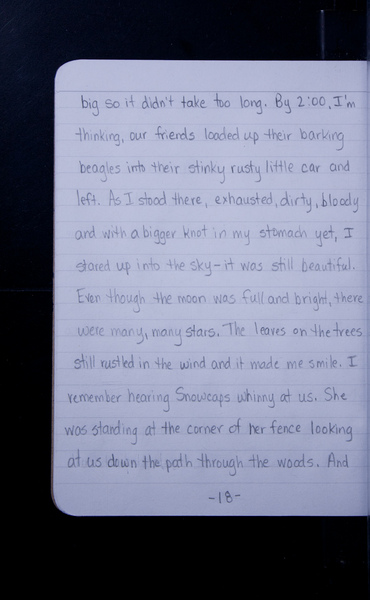 big so it didn't take too long. By 2:00, I'm
thinking, our friends loaded up their barking
beagles into their stinky rusty little car and
left. As I stood there, exhausted, dirty, bloody
and with a bigger knot in my stomach yet, I
stared up into the sky-it was still beautiful.
Even though the moon was full and bright, there
were many, many stars. The leaves on the trees
still rustled in the wind and it made me smile. I
remember hearing Snowcaps whinny at us. She
was standing at the corner of her fence looking
at us down the path through the woods. And
-18-